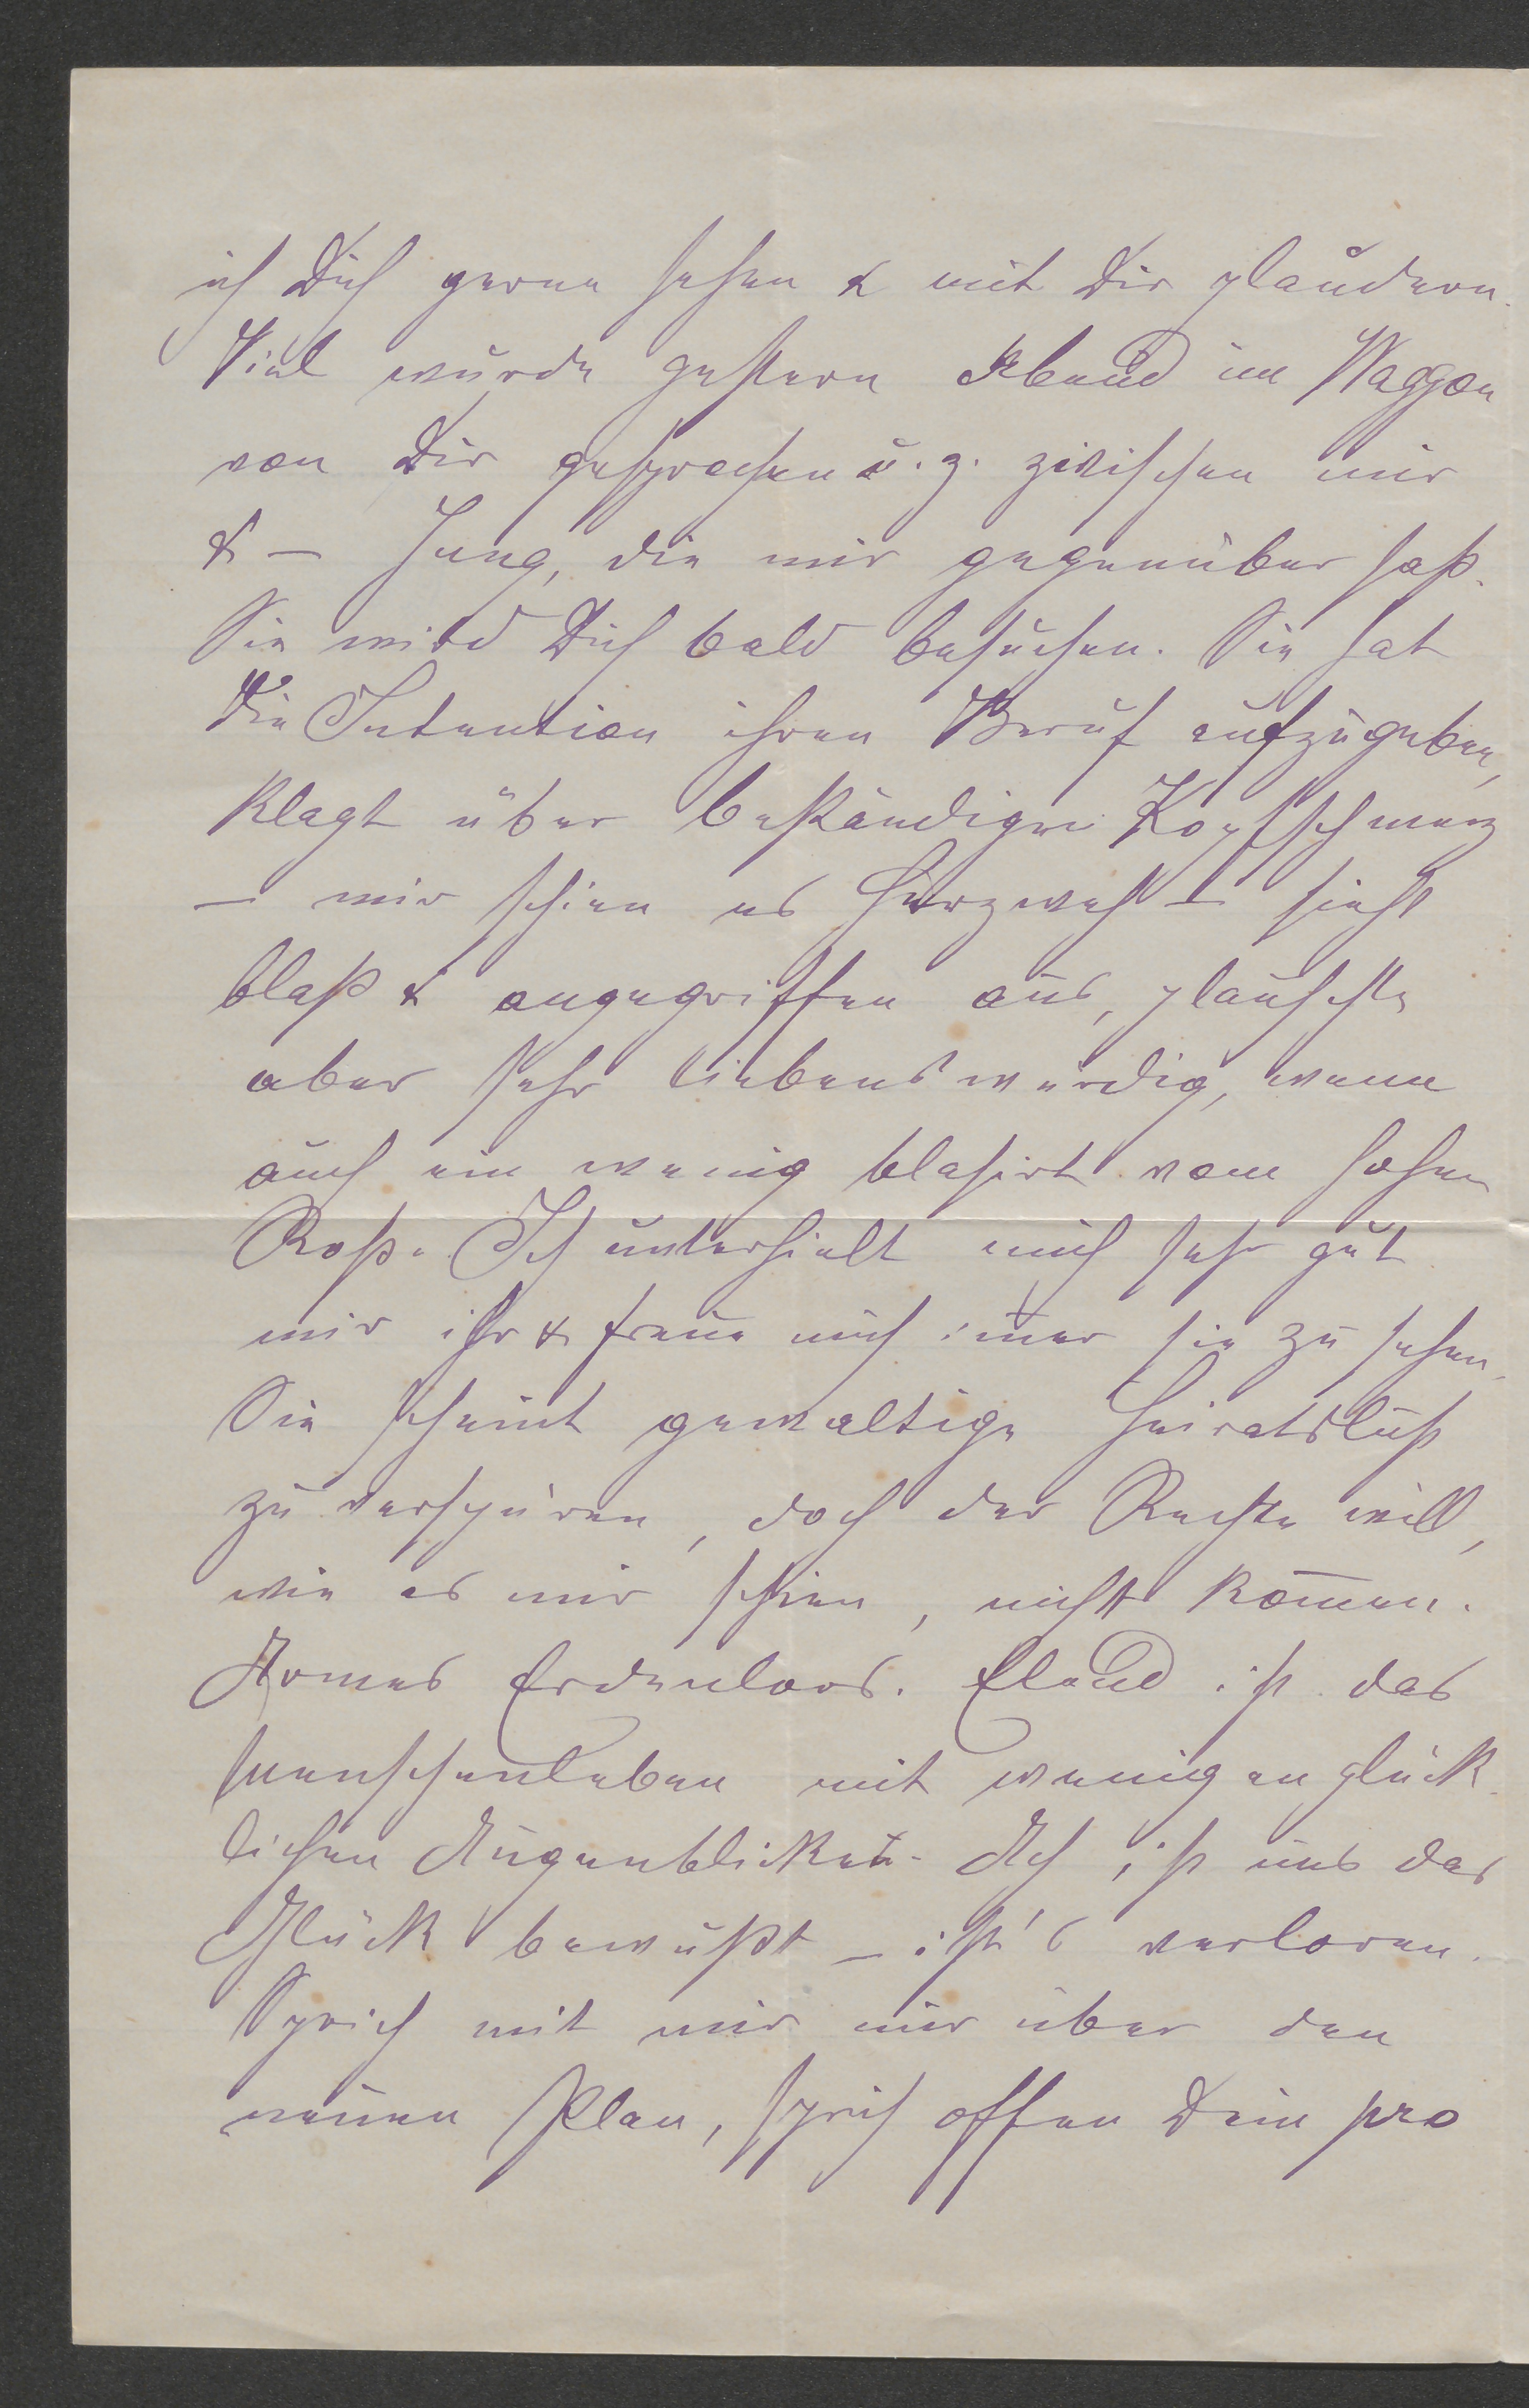 ich Dich gerne sehen & mit Dir plaudern.
Viel wurde gestern Abend im Waggon
von Dir gesprochen u. z. zwischen mir
& – Jung, die mir gegenüber saß.
Sie wird Dich bald besuchen. Sie hat
die Intention ihren Beruf aufzugeben,
klagt über beständigen Kopfschmerz
– mir schien es Herzweh – sieht
blaß & angegriffen aus, plauschte
aber sehr liebenswürdig, wenn
auch ein wenig blasirt vom hohen
Roß. Ich unterhielt mich sehr gut
mir ihr & freue mich im̄er sie zu sehen.
Sie scheint gewaltige Heiratslust
zu verspüren, doch der Rechte will,
wie es mir schien, nicht kom̄en.
Armes Erdenloos. Elend ist das
Menschenleben mit wenigen glück-
lichen Augenblicken. Ach ist uns das
Glück bewußt – ist's verloren.
Sprich mit mir nur über den
neuen Plan, sprich offen Dein pro